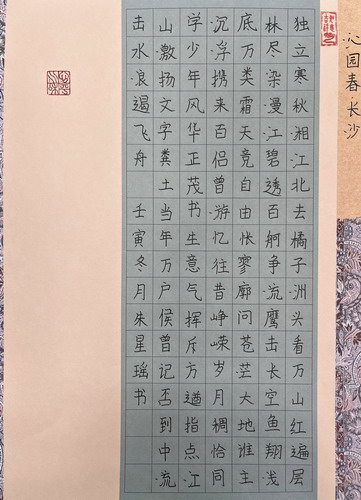 沁园春·长沙
独立寒秋湘江北去橘子洲头看万山红遍层
林尽染漫江碧透百舸争流鹰击长空鱼翔浅
底万类霜天竞自由怅寥廓问苍茫大地谁主
沉浮携来百侣曾游忆往昔峥嵘岁月稠恰同
学少年风华正茂书生意气挥斥方遒指点江
山激扬文字粪土当年万户侯曾记否到中流
击水浪遏飞舟 壬寅冬月朱星瑶书